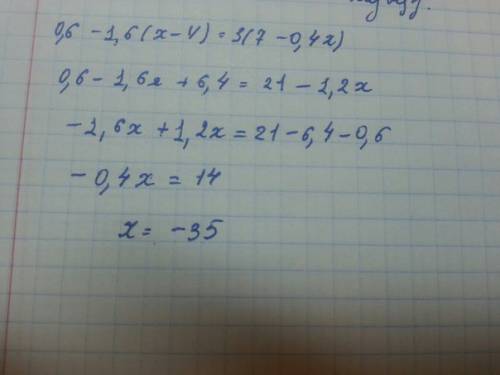 0,6 - 1,6(x - 4) = 3(7 - 0,4x)
0,6 - 1,6x + 6,4 = 21 - 1,2x
- 1,6x + 1,2x = 21 - 6,4 - 0,6
- 0,4x = 14
x = -35